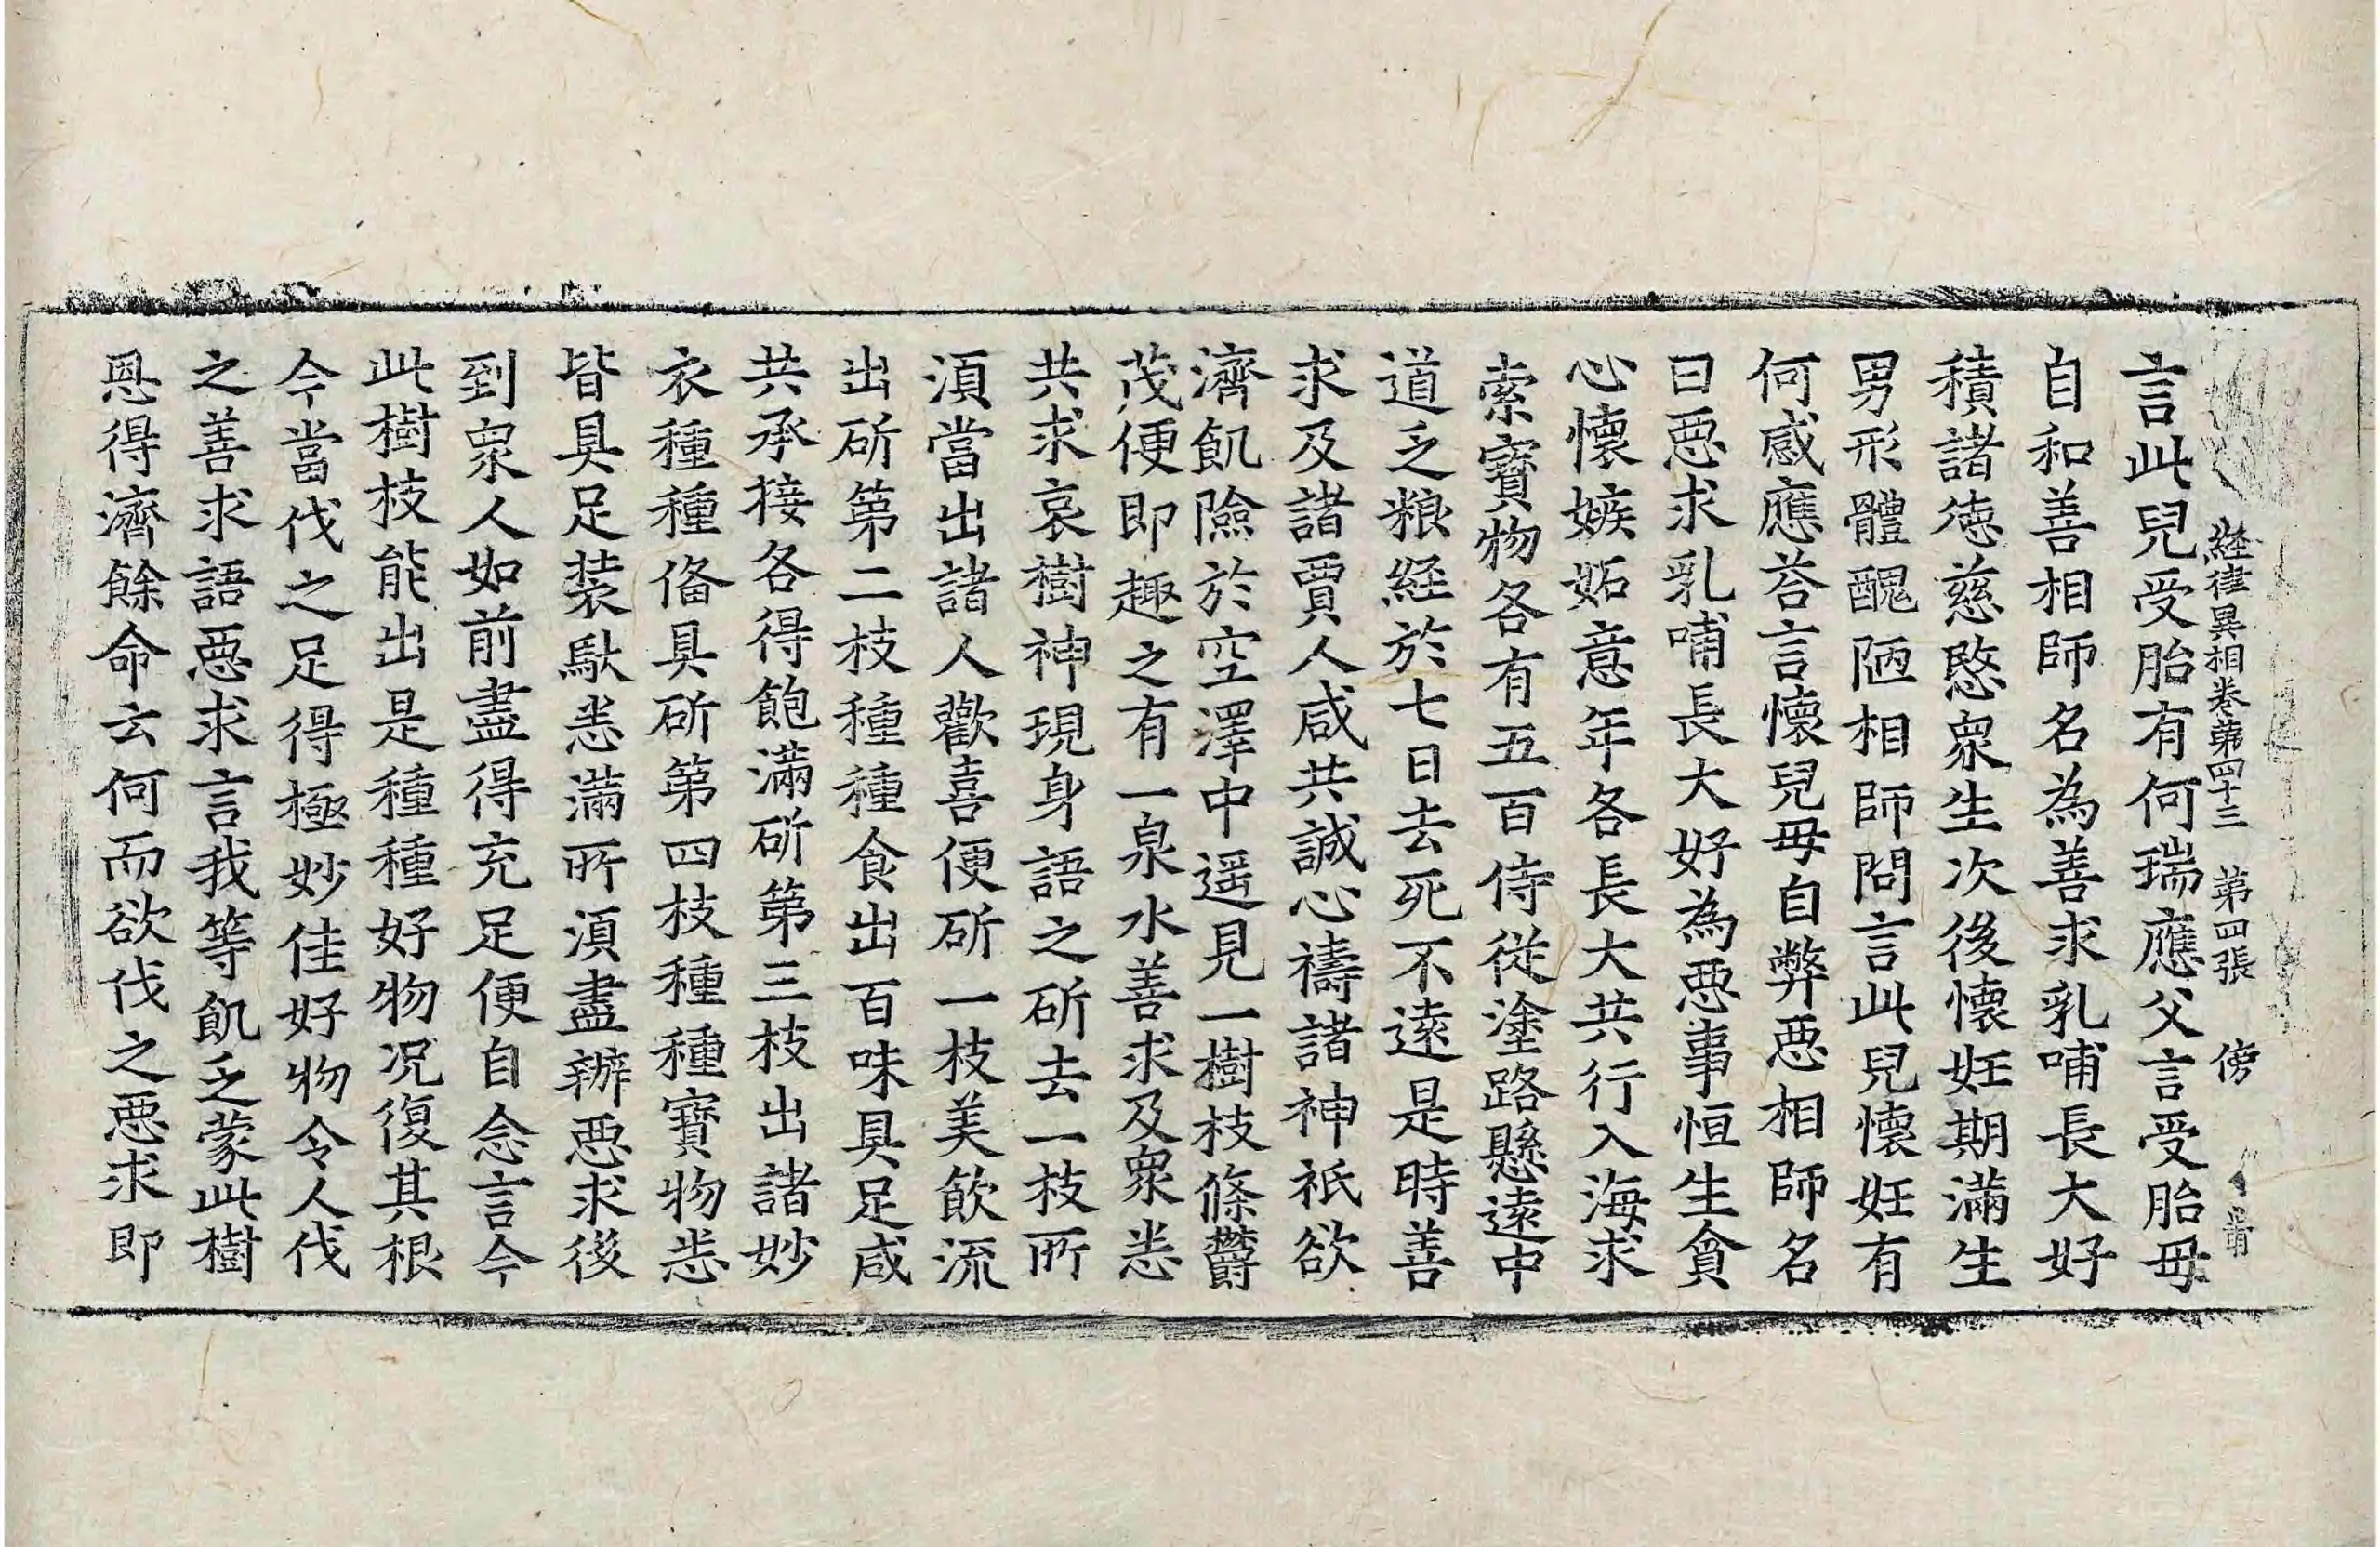 経律異相卷第四十三　第四張　傍
言此兒受胎有何瑞應父言受胎毋
自和善相師名為善求乳哺長大好
積諸徳慈愍衆生次後懷妊期滿生
男形體醜陋相師問言此兒懷妊有
何感應荅言懷兒毋自弊惡相師名
曰惡求乳哺長大好為惡事恒生貪
心懷嫉妬意年各長大共行入海求
索寶物各有五百侍從塗路懸遠中
道乏粮経於七日去死不遠是時善
求及諸賈人咸共誠心禱諸神祇欲
濟飢險於空澤中遥見一樹枝條欝
茂便即趣之有一泉水善求及衆悉
共求哀樹神現身語之斫去一枝所
湏當出諸人歡喜便斫一枝美飲流
出斫第二枝種種食出百味具足咸
共承接各得飽滿斫第三枝出諸妙
衣種種俻具斫第四枝種種寶物悉
皆具足装馱悉滿所湏盡辦惡求後
到衆人如前盡得充足便自念言今
此樹枝能出是種種好物况復其根
今當伐之足得極妙佳好物令人伐
之善求語惡求言我等飢乏蒙此樹
恩得濟餘命云何而欲伐之惡求即